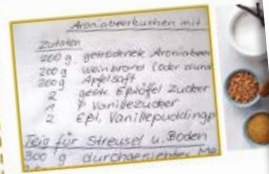 Aroniabeerkuchen mit
Zutaten
200 g getrocknete Aroniabeer
200 g Weinbrand (oder
200 g Apfelsaft
2 gestr. Eßlöfel Zucker
1 P Vanillezucker
2 Eßl. Vanillepudding
Teig für Streusel u. Boden
300 g